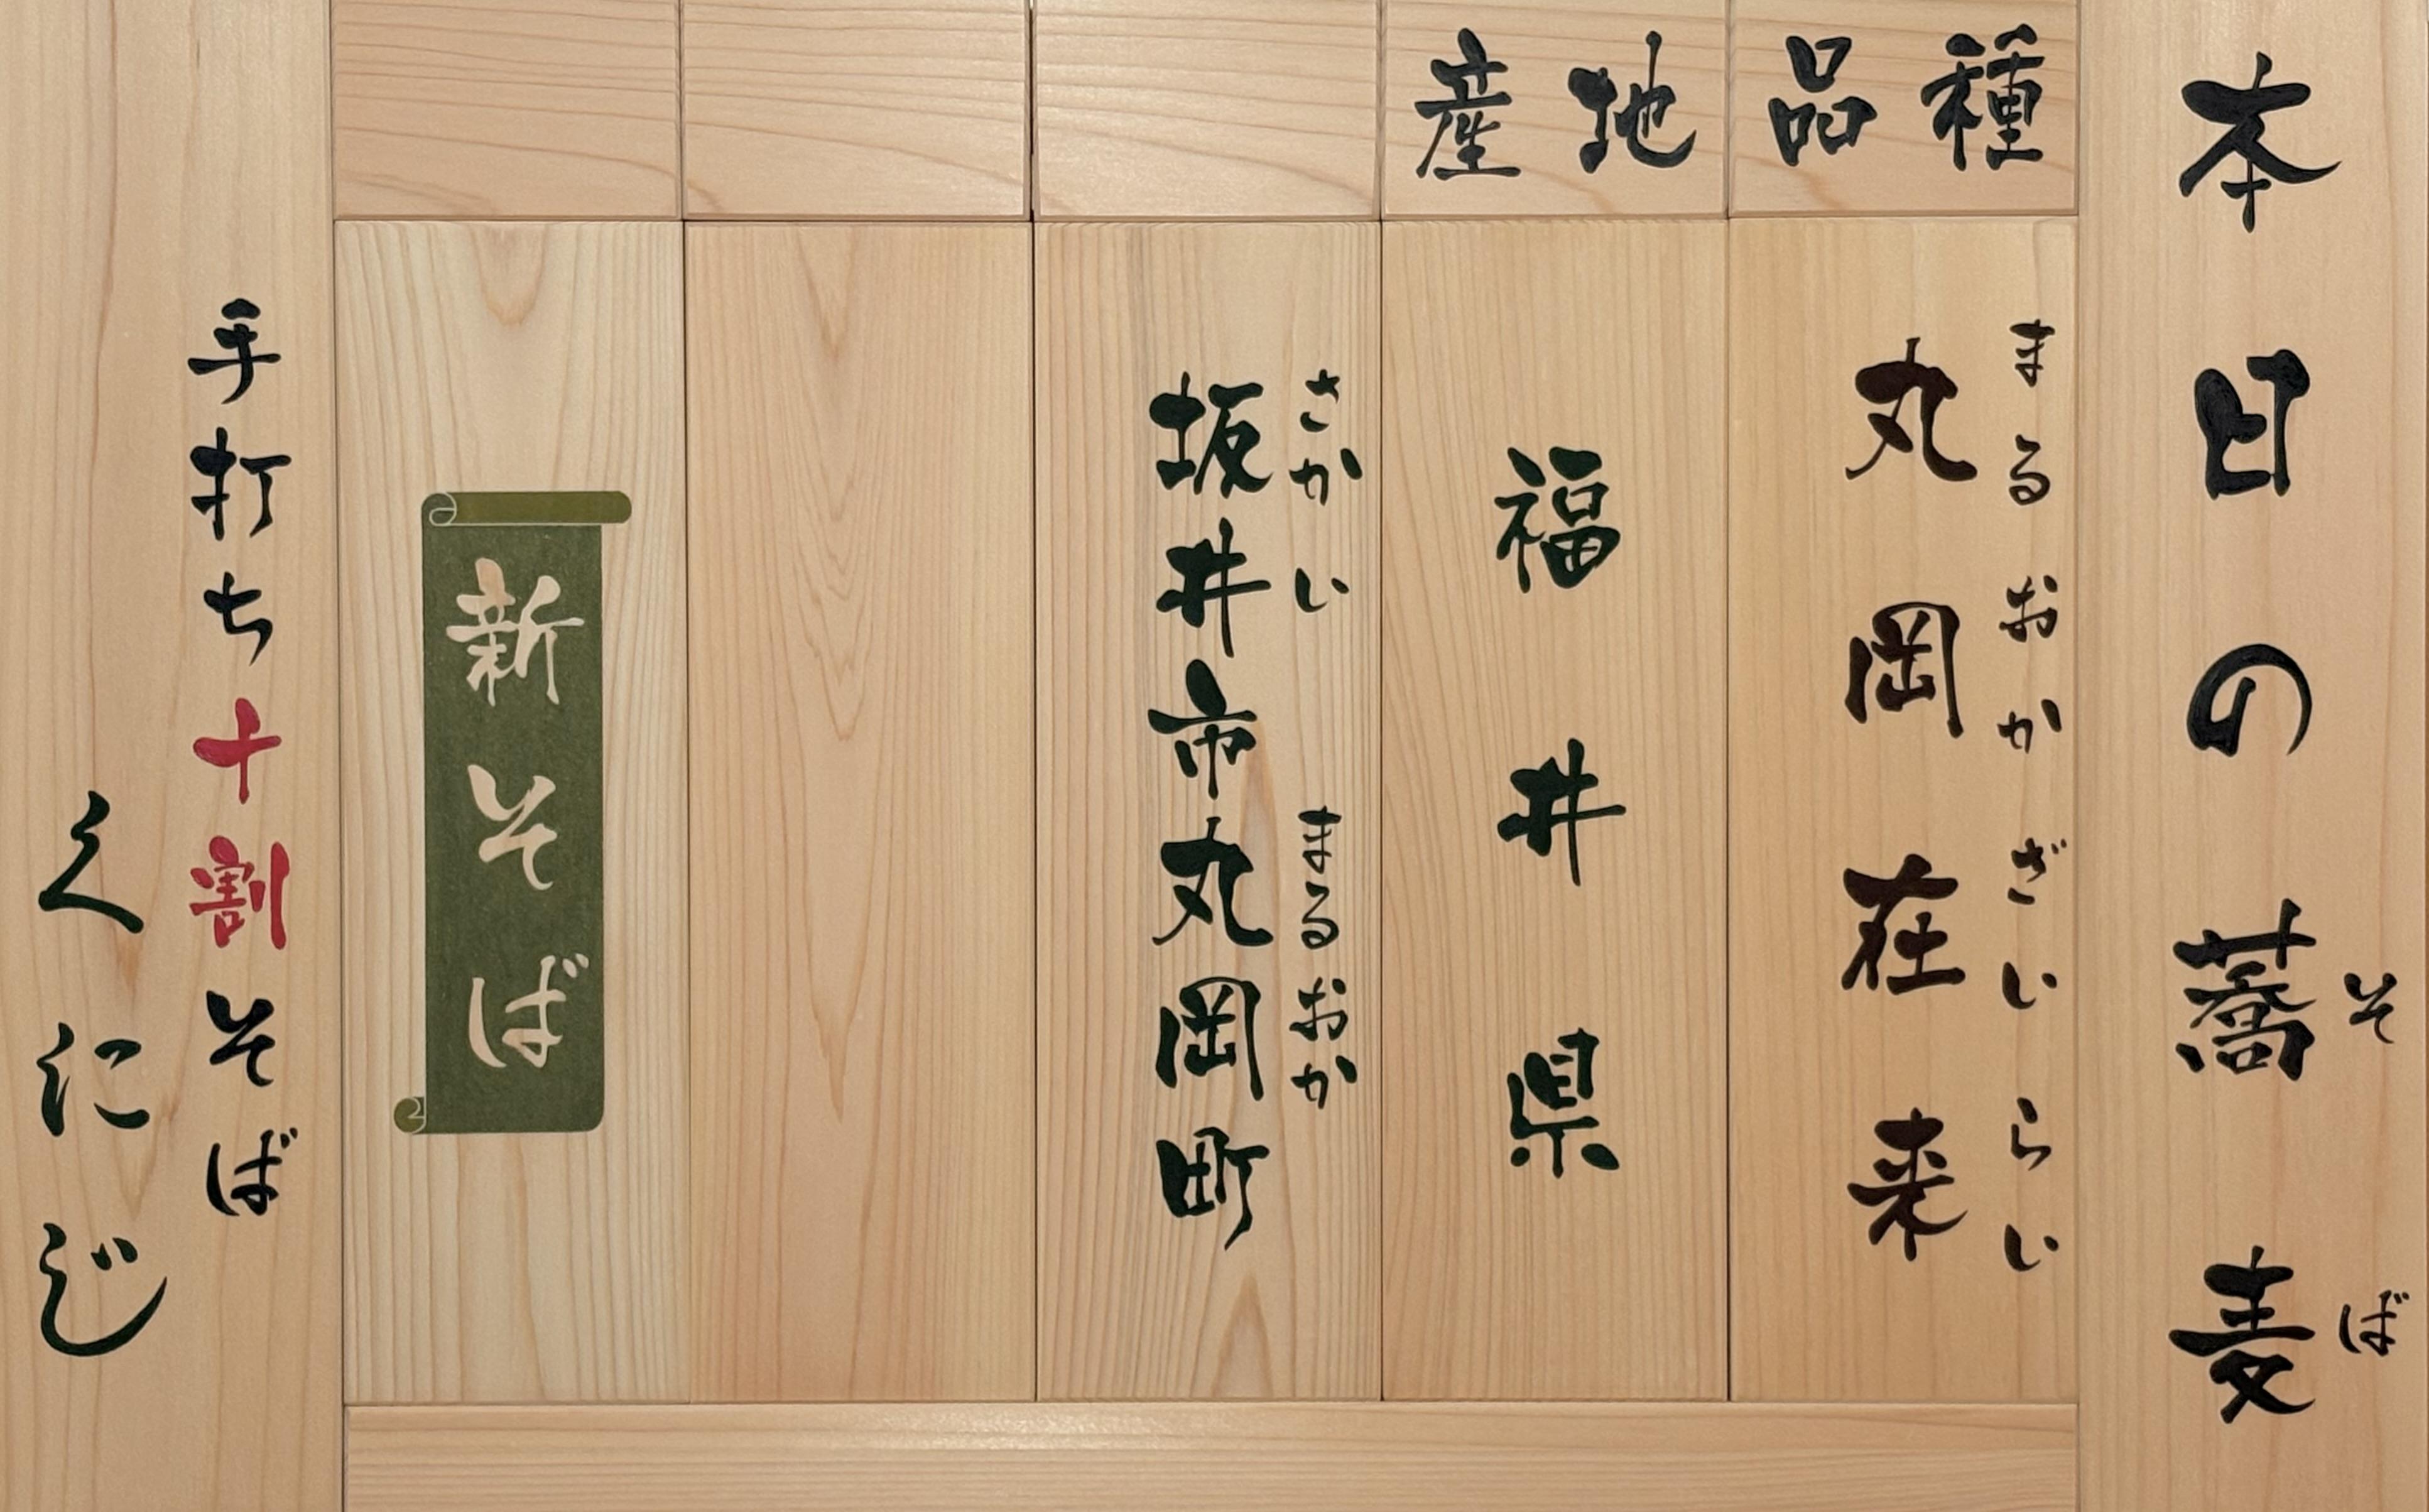 本日の蕎麦
そば
品種
丸岡在来
まるおかざいらい
産地
福井県
坂井市丸岡町
さかい
まるおか
新そば
手打ち十割そば
くにじ